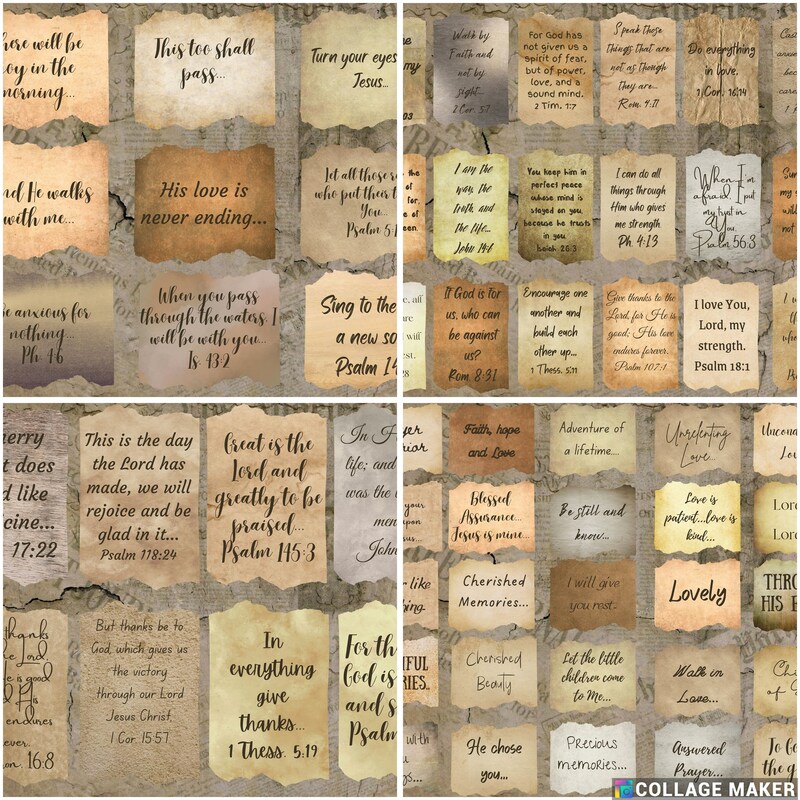 here will be
oy in the
morning...
This too shall
pass...
Turn your eyes
Jesus...
nd He walks
with me...
His love is
never ending...
Let all those
who put their t
You...
Psalm 5:1
e anxious for
nothing...
Ph. 4:6
When you pass
through the waters, I
will be with you...
Is. 43:2
Sing to the
a new so
Psalm 14
Walk by
Faith and
not by
sight...
2 Cor. 5:7
For God has
not given us a
spirit of fear,
but of power,
love, and a
sound mind.
2 Tim. 1:7
Speak those
things that are
not as though
they are...
Rom. 4:17
Do everything
in love.
1 Cor. 16:14
I am the
way, the
truth, and
the life...
John 14:6
You keep him in
perfect peace
whose mind is
stayed on you,
because he trusts
in you.
Isaiah 26:3
I can do all
things through
Him who gives
me strength
Ph. 4:13
When I'm
afraid, I put
my trust in
You.
Psalm 56:3
If God is for
us, who can
be against
us?
Rom 8:31
Encourage one
another and
build each
other up...
1 Thess. 5:11
Give thanks to the
Lord, for He is
good; His love
endures forever.
Psalm 107:1
I love You,
Lord, my
strength.
Psalm 18:1
erry
t does
d like
cine...
17:22
This is the day
the Lord has
made, we will
rejoice and be
glad in it...
Psalm 118:24
Great is the
Lord and
greatly to be
praised...
Psalm 145:3
In H
life; and
was the
men
John
thanks
he Lord
e is good
d His
endures
ever.
on. 16:8
But thanks be to
God, which gives us
the victory
through our Lord
Jesus Christ.
1 Cor. 15:57
In
everything
give
thanks...
1 Thess. 5:19
For th
God is
and s
Psalm
Faith, hope
and Love
Adventure of
a lifetime...
Unrelenting
Love...
Uncond
Lo
Blessed
Assurance...
Jesus is mine...
Be still and
know...
Love is
patient...love is
kind...
Lor
Lor
Cherished
Memories...
I will give
you rest..
Lovely
THRO
HIS B
Cherished
Beauty
Let the little
children come
to Me...
Walk in
Love...
Chi
of
He chose
you...
Precious
memories...
Answered
Prayer...
To Go
the g
COLLAGE MAKER